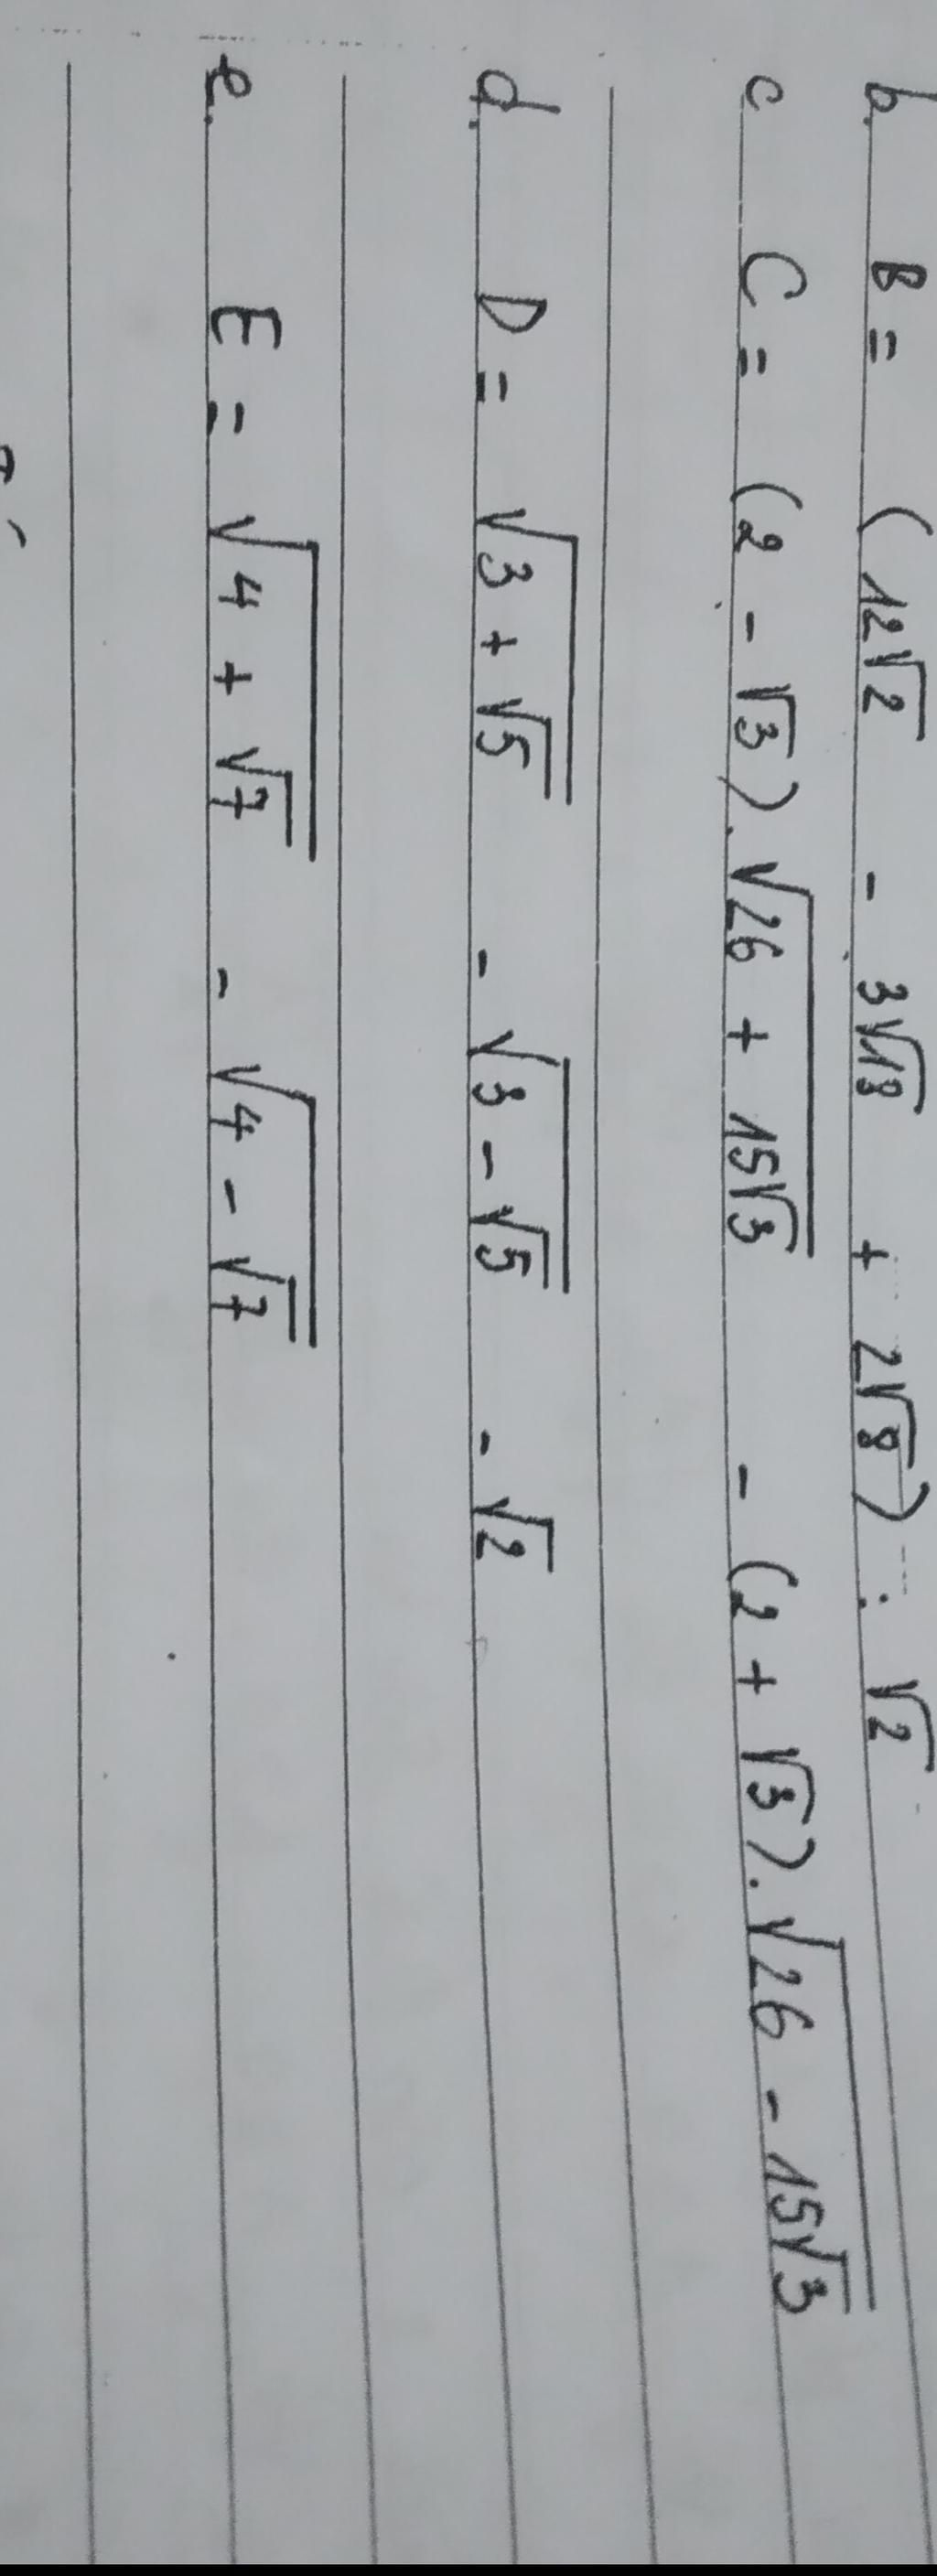 b. B = (12√2 - 3√18 + 2√8) : √2
c C = (2 - √3).√(26 + 15√3) - (2 + √3).√(26 - 15√3)
d. D = √(3 + √5) - √(3 - √5) - √2
e. E = √(4 + √7) - √(4 - √7)